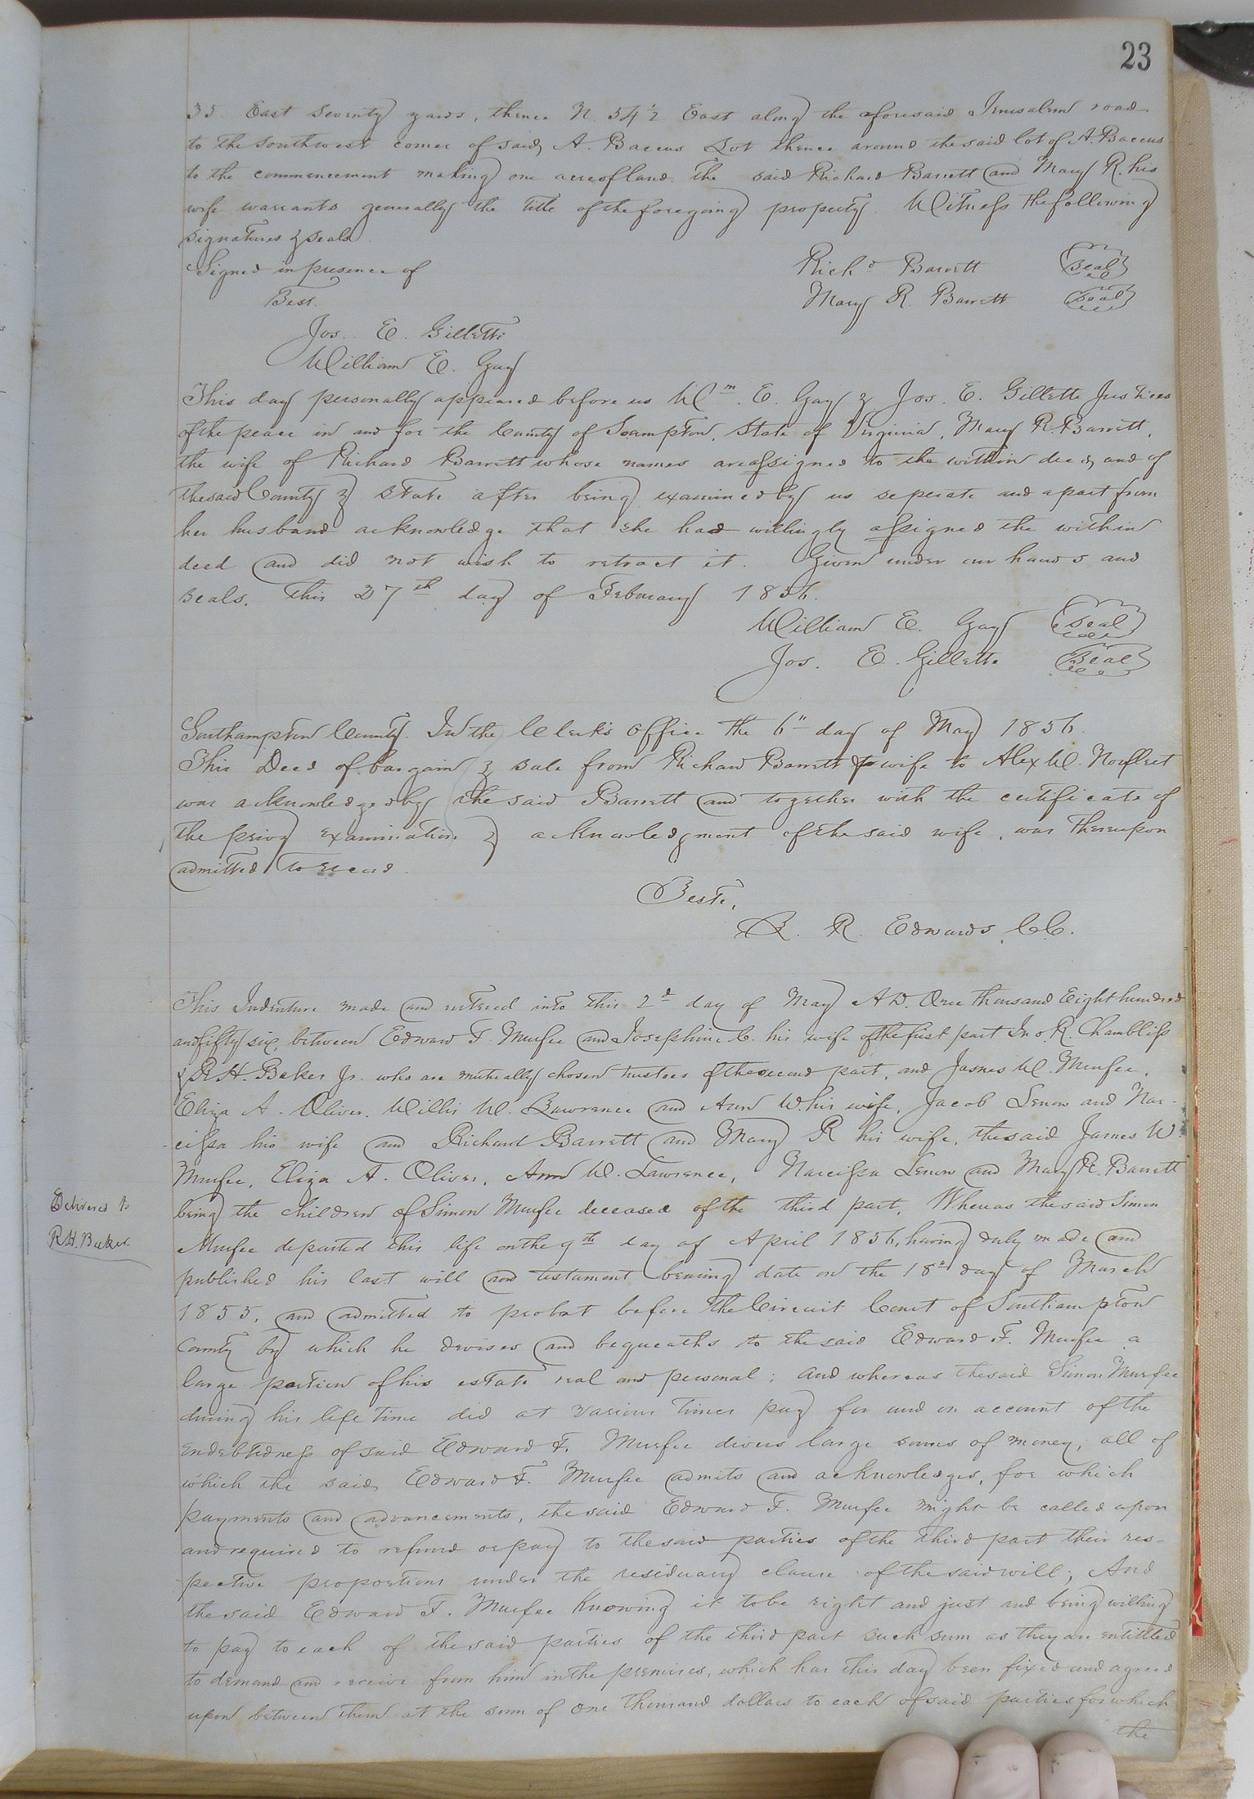 23
35 East seventy yards, thence N. 54½ East along the aforesaid Jerusalem road
to the southwest corner of said A. Baccus Lot thence around the said lot of A. Baccus
to the commencement making one acre of land. The said Richard Barrett and Mary R. his
wife warrants generally the title of the foregoing property. Witness the following
signatures & seals.
Signed in presence of
Richd Barrett (seal)
Test.
Mary R. Barrett (seal)
Jos. E. Gillette
William E. Gay
This day personally appeared before us Wm. E. Gay & Jos. E. Gillette Justices
of the peace in and for the County of Southampton, State of Virginia, Mary R. Barrett,
the wife of Richard Barrett whose names are assigned to the within deed, and of
the said County & State after being examined by us seperate and apart from
her husband acknowledge that she had willingly assigned the within
deed and did not wish to retract it. Given under our hands and
seals. This 27th day of February 1856.
William E. Gay (seal)
Jos. E. Gillette (Seal)
Southampton County. In the Clerk's office the 6" day of May 1856.
This Deed of bargain & sale from Richard Barrett & wife to Alex W. Norfleet
was acknowledged by the said Barrett and together with the certificate of
the privy examination & acknowledgment of the said wife, was thereupon
admitted to record.
Teste,
L. R. Edwards, C.C.
This Indenture made and entered into this 2d day of May A.D. One thousand Eight hundred
and fifty six, between Edward F. Murfee and Josephine C. his wife of the first part Jno. R. Chambliss
& R. H. Baker Jr. who are mutually chosen trustees of the second part, and James W. Murfee,
Eliza A. Oliver, Willis W. Lawrence and Ann W. his wife, Jacob Lenow and Nar-
cissa his wife and Richard Barrett and Mary R his wife, the said James W
Murfee, Eliza A. Oliver, Ann W. Lawrence, Narcissa Lenow and Mary R. Barrett
being the children of Simon Murfee deceased of the third part. Whereas the said Simon
Murfee departed this life on the 9th day of April 1856, having duly made and
published his last will and testament, bearing date on the 18th day of March
1855, and admitted to probat before the Circuit Court of Southampton
County by which he devises and bequeaths to the said Edward F. Murfee a
large portion of his estate real and personal; and whereas the said Simon Murfee
during his life time did at various times pay for and on account of the
indebtedness of said Edward F. Murfee divers large sums of money, all of
which the said Edward F. Murfee admits and acknowledges, for which
payments and advancements, the said Edward F. Murfee might be called upon
and required to refund or pay to the said parties of the third part their res-
pective proportions under the residuary clause of the said will; And
the said Edward F. Murfee Knowing it to be right and just and being willing
to pay to each of the said parties of the third part such sum as they are entitled
to demand and receive from him in the premises, which has this day been fixed and agreed
upon between them at the sum of one thousand dollars to each of said parties for which
the
Delivered to
R.H. Baker